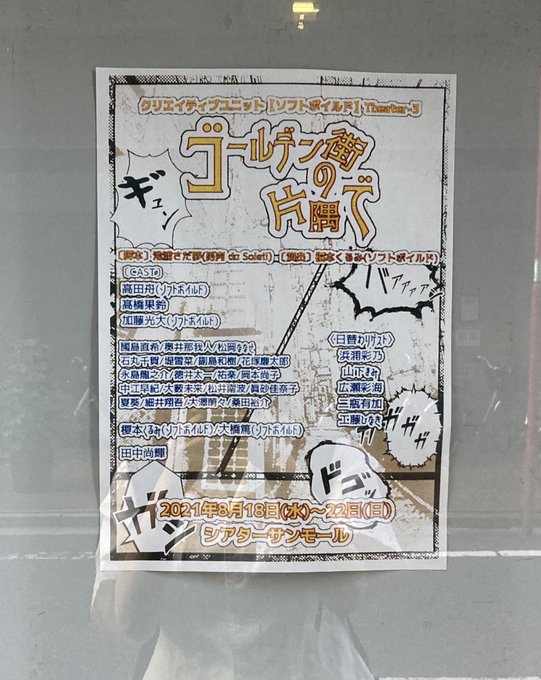 クリエイティブユニット【ソフトボイルド】Theater-3
ゴールデン街
の
片隅で
ギュン
【脚本】 【演出】榎本くるみ(ソフトボイルド)
【CAST】
高田舟(ソフトボイルド)
高橋果鈴
加藤光大(ソフトボイルド)
バァァァァ
國島直希/奥井那我人/松岡ななせ
石丸千賀/堤雪菜/副島和樹/花塚慶太郎
永島龍之介/徳井太一/祐楽/岡本尚子
中江早紀/大薮未来/松井南波/眞砂佳奈子
夏葵/細井翔吾/大澤萌々/桑田裕介
〈日替わりゲスト〉
浜浦彩乃
山下まみ
広瀬彩海
三瓶有加
工藤ひなき
ガガガ
榎本くるみ(ソフトボイルド)/大橋篤(ソフトボイルド)
田中尚輝
ドゴッ
ガン
2021年8月18日(水)〜22日(日)
シアターサンモール